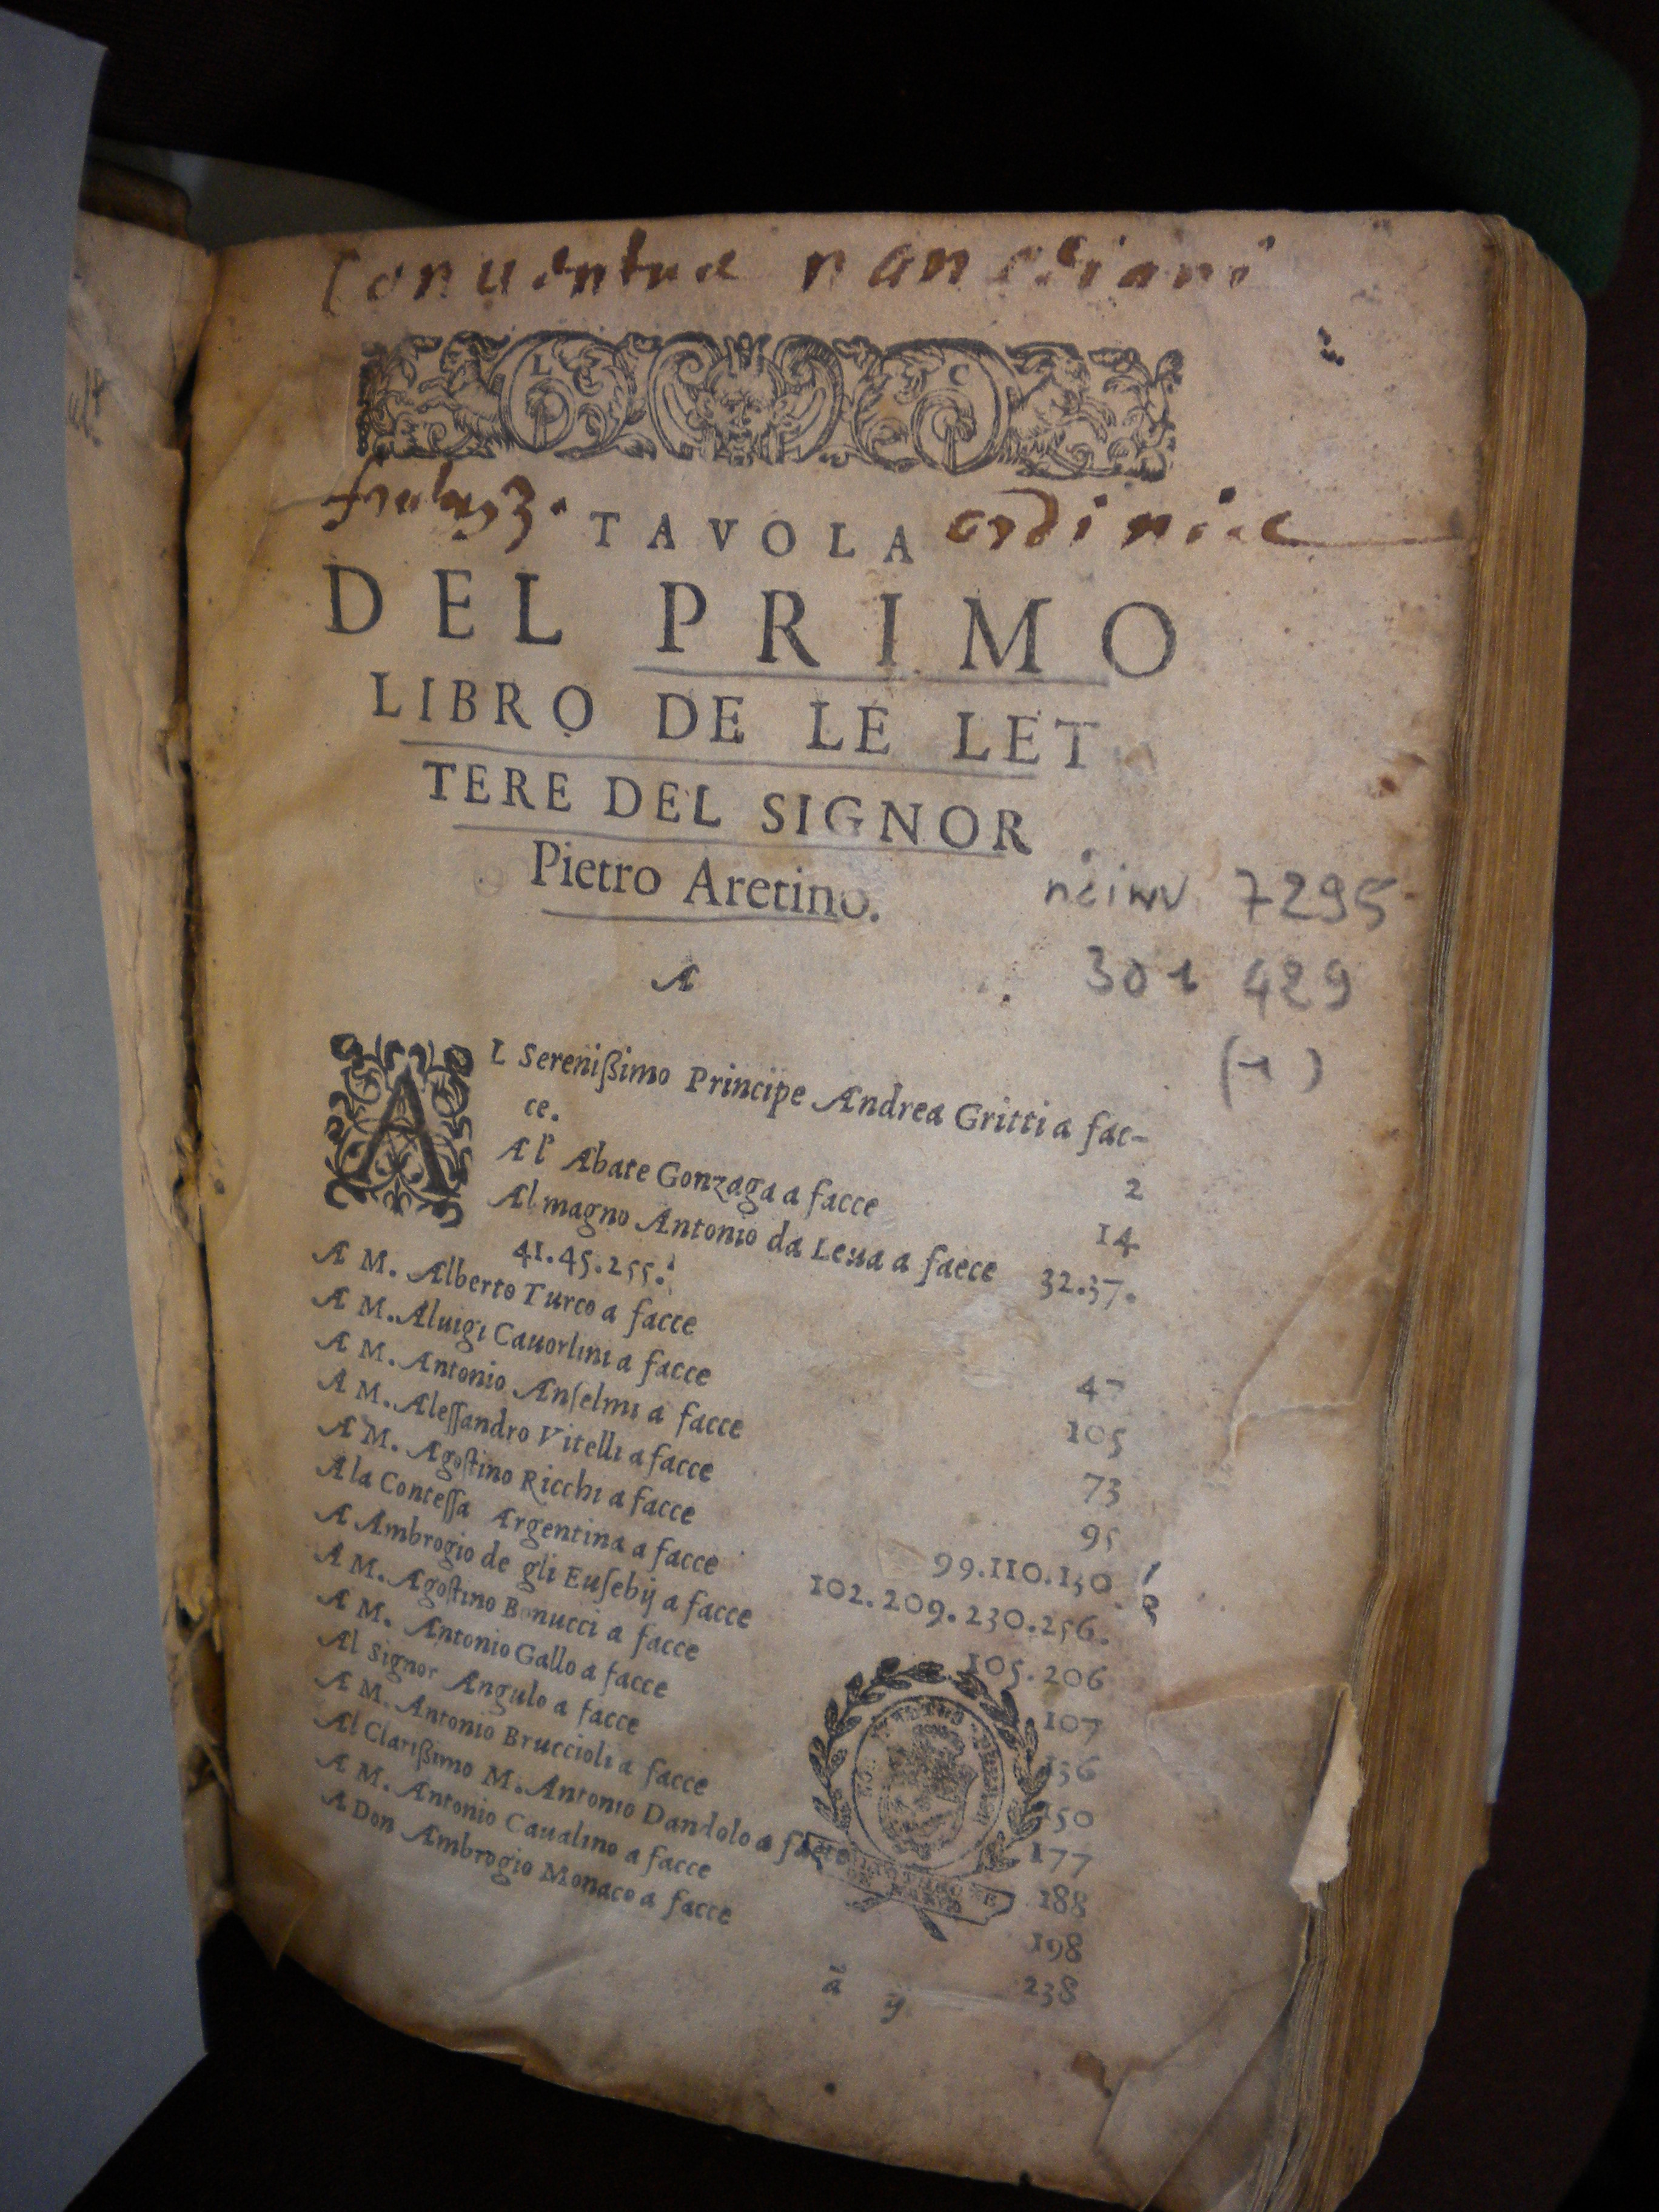 Conventus nanceiani
L C
TAVOLA ordinis
DEL PRIMO
LIBRO DE LE LET
TERE DEL SIGNOR
Pietro Aretino.
7295
A
301 429
(1)
AL Sereniſſimo Principe Andrea Gritti a fac-
ce. 2
Al' Abate Gonzaga a facce 14
Al magno Antonio da Leua a faece 32.37.
41.45.255.
A M. Alberto Turco a facce 47
A M. Aluigi Cauorlini a facce 105
A M. Antonio Anſelmi a facce 73
A M. Aleſſandro Vitelli a facce 95
A M. Agoſtino Ricchi a facce 99.110.130
A la Conteſſa Argentina a facce 102.209.230.256.
A Ambrogio de gli Euſebij a facce 105.206
A M. Agoſtino Bonucci a facce 107
A M. Antonio Gallo a facce 136
Al Signor Angulo a facce 150
A M. Antonio Bruccioli a facce 177
Al Clariſſimo M. Antonio Dandolo a facce 188
A M. Antonio Caualino a facce 198
A Don Ambrogio Monaco a facce 238
a ij